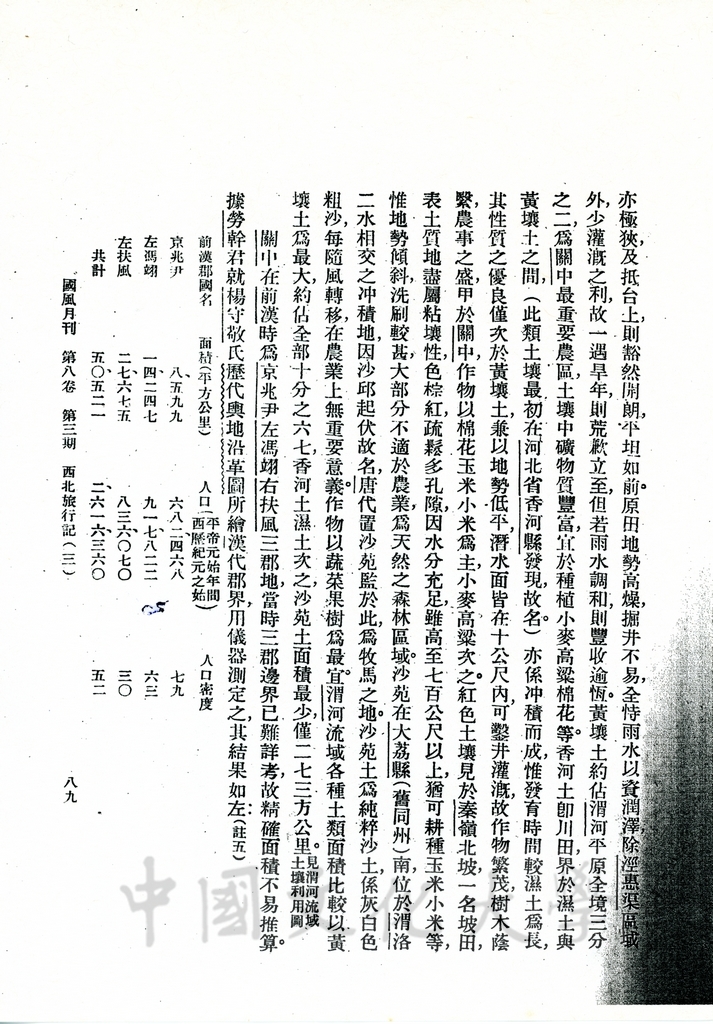 亦極狹及抵台上,則豁然開朗,平坦如前原田地勢高燥掘井不易,全恃雨水以資潤澤除涇惠渠區域
外少灌溉之利,故一遇旱年則荒歉立至,但若雨水調和則豐收逾恆。黃壤土約佔渭河平原全境三分
之二,為關中最重要農區,土壤中礦物質豐富,宜於種植小麥高粱棉花等。香河土即川田界於濕土與
黃壤土之間,(此類土壤最初在河北省香河縣發現,故名)亦係沖積而成,惟發育時間較濕土為長,
其性質之優良僅次於黃壤土兼以地勢低平,潛水面皆在十公尺內,可鑿井灌溉,故作物繁茂樹木蔭
繫,農事之盛甲於關中,作物以棉花玉米小米為主,小麥高粱次之。紅色土壤見於秦嶺北坡,一名坡田,
表土質地盡屬粘壤,性色棕紅,疏鬆多孔隙因水分充足,雖高至七百公尺以上,猶可耕種玉米小米等,
惟地勢傾斜,洗刷較甚,大部分不適於農業,為天然之森林區域。沙苑在大荔縣(舊同州)南,位於渭洛
二水相交之沖積地,因沙邱起伏故名,唐代置沙苑監於此,為牧馬之地。沙苑土為純粹沙土,係灰白色
粗沙,每隨風轉移,在農業上無重要意義,作物以蔬菜果樹為最宜。渭河流域各種土類面積比較以黃
壤土為最大,約佔全部十分之六七,香河土濕土次之,沙苑土面積最少,僅二七三方公里。見渭河流域土壤利用圖
關中在前漢時為京兆尹左馮翊右扶風三郡地,當時三郡邊界已難詳考,故精確面積不易推算。
據勞幹君就楊守敬氏歷代輿地沿革圖所繪漢代郡界,用儀器測定之,其結果如左:(註五)
前漢郡國名 面積(平方公里) 人口(平帝元始年間西歷紀元之始) 人口密度
京兆尹 八、五九九 六八二、四六八 七九
左馮翊 一四、二四七 九一七、八二二 六三
左扶風 二七、六七五 八三六、〇七〇 三〇
共計 五〇、五二一 二、六一六、三六〇 五二
國風月刊 第八卷 第三期 西北旅行記(三) 八九
中國文化大學